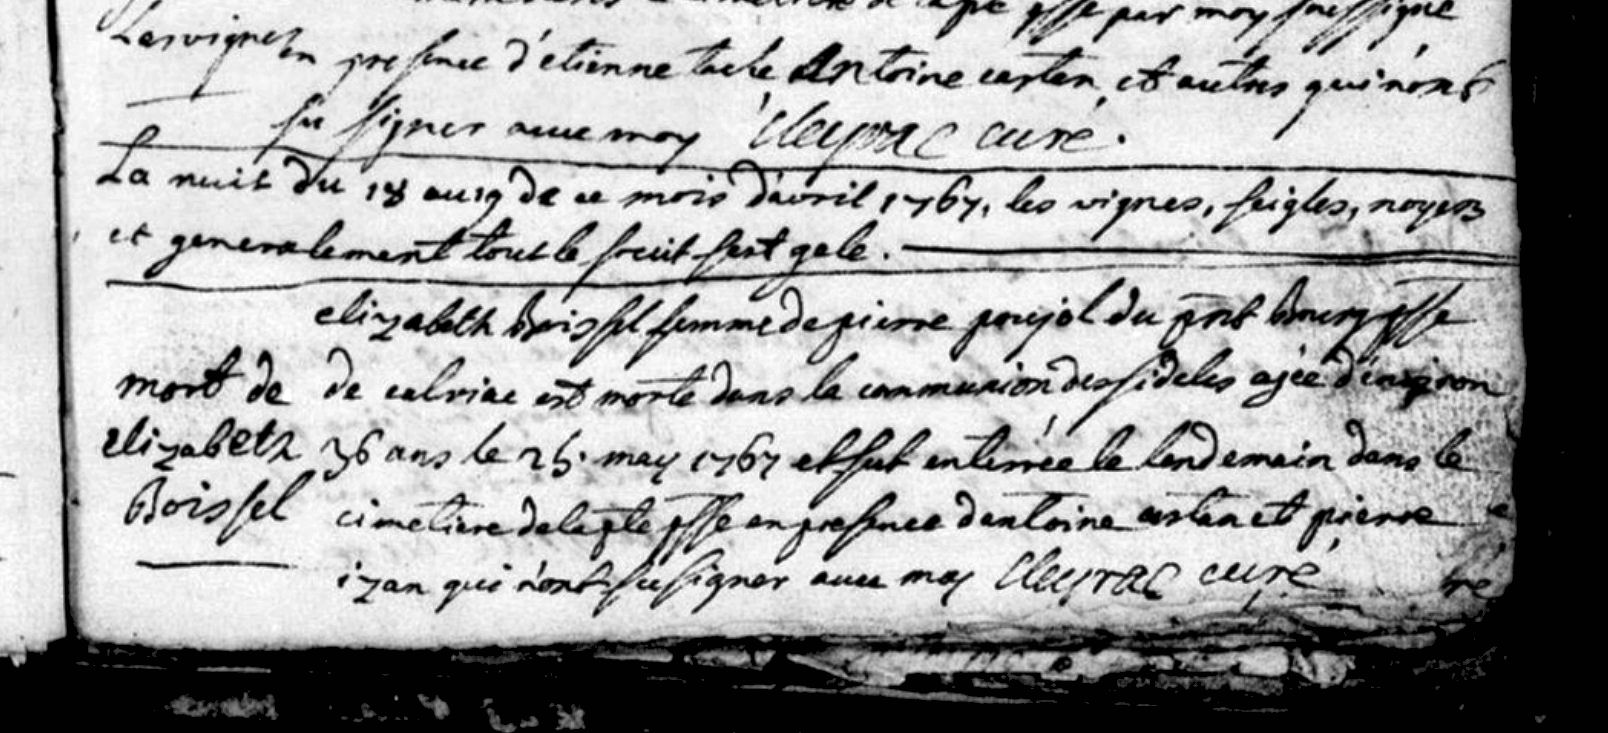 cimetiere de la pte psse par moy soussigné
Lasvignes
en presence d'etienne tache, Antoine castan, et autres qui n'ont
su signer avec moy Cleyrac curé.
La nuit du 18 au 19 de ce mois d'avril 1767, les vignes, seigles, noyers
et generalement tout le fruit fust gele.
elizabeth Boissel femme de pierre poujol du pnt bourg psse
mort de
de calviac est morte dans la communion des fideles agée d'environ
elizabeth
36 ans le 25. may 1767 et fut enterrée le lendemain dans le
Boissel
cimetiere de la pte psse en presence d'antoine castan et pierre
izan qui n'ont su signer avec moy Cleyrac curé